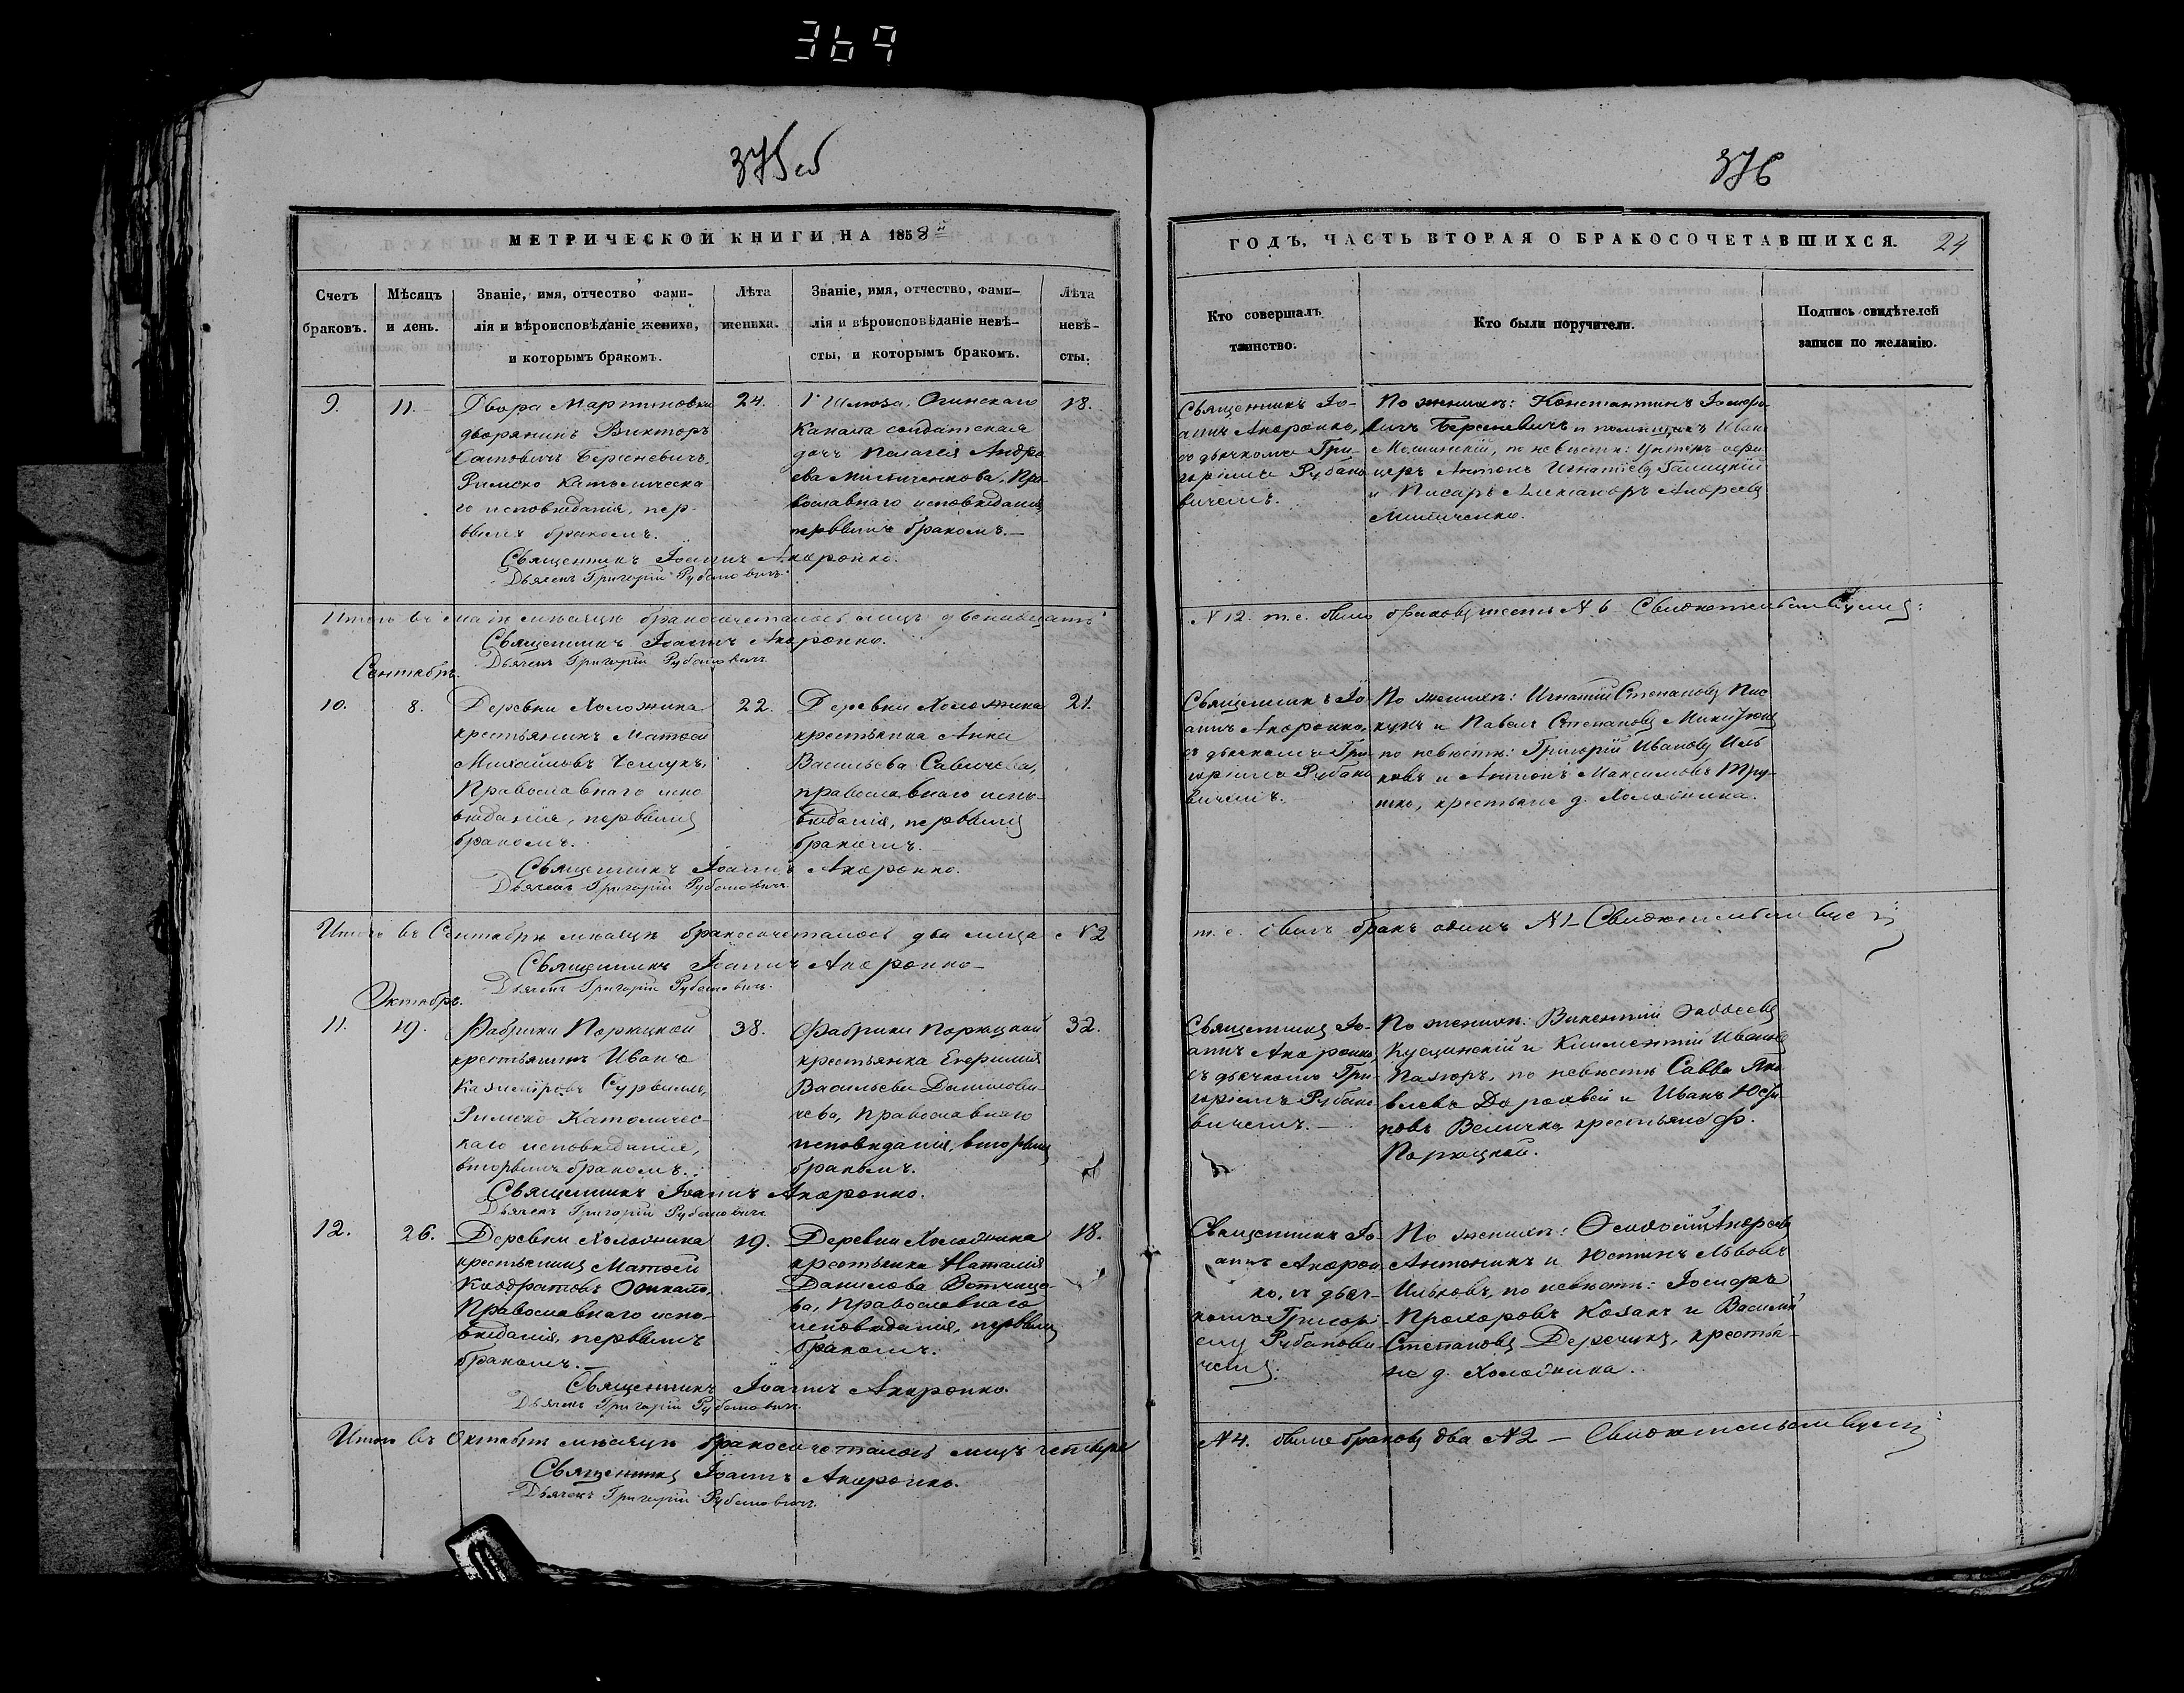 369
375об
376
МЕТРИЧЕСКОЙ КНИГИ НА 1858й
ГОДЪ, ЧАСТЬ ВТОРАЯ О БРАКОСОЧЕТАВШИХСЯ.
24
Счетъ
браковъ.
Мѣсяцъ
и день.
Званіе, имя, отчество фами-
лія и вѣроисповѣданіе жениха,
и которымъ бракомъ.
Лѣта
жениха.
Званіе, имя, отчество, фами-
лія и вѣроисповѣданіе невѣ-
сты, и которымъ бракомъ.
Лѣта
невѣ-
сты.
Кто совершалъ
таинство.
Кто были поручители.
Подпись свидѣтелей
записи по желанію.
9.
11.
Двора Мартиновки
дворянинъ Викторъ
Береневичъ,
Римско Католическа
го исповѣданія, пер-
вымъ бракомъ.
24.
Шлюза Огинскаго
Канала солдатская
дочь Пелагія Андре
ева Митиченкова, Пра-
вославнаго исповѣданія,
первымъ бракомъ.
18.
Священникъ Іо-
аннъ Андронко,
съ дьячкомъ Гри-
горіемъ Рубано
вичемъ.
По женихѣ: Константинъ Іосифо-
вичъ Береневичъ и помѣщикъ Иванъ
по невѣстѣ: Унтеръ офи
церъ Антонъ Игнатіевъ Галицкій
и Писарь Александръ Андреевъ
Митиченко.
Священникъ Іоаннъ Андронко.
Дьячекъ Григорій Рубановичъ.
Итого въ маѣ мѣсяцѣ бракосочеталось лицъ двѣнадцать
N 12. т. е. было браковъ шесть N 6. Свидѣтельствуемъ:
Священникъ Іоаннъ Андронко.
Дьячекъ Григорій Рубановичъ.
Сентябрь.
10.
8.
Деревни Холожина
крестьянинъ Матвей
Михайловъ
Православнаго испо
вѣданія, первымъ
бракомъ.
22.
Деревни Холожина
крестьянка Анна
Васильева Савичева,
православнаго испо-
вѣданія, первымъ
бракомъ.
21.
Священникъ Іо
аннъ Андронко,
съ дьячкомъ Гри-
горіемъ Рубано
вичемъ.
По женихѣ: Игнатій Степановъ Пис
кунъ и Павелъ Степановъ
по невѣстѣ: Григорій Ивановъ Иль
ковъ и Антонъ Максимовъ
крестьяне д. Холожина.
Священникъ Іоаннъ Андронко.
Дьячекъ Григорій Рубановичъ.
Итого въ Сентябрѣ мѣсяцѣ бракосочеталось два лица N 2
т. е. былъ бракъ одинъ N 1 – Свидѣтельствуемъ:
Священникъ Іоаннъ Андронко –
Дьячекъ Григорій Рубановичъ.
Октябрь.
11.
19.
Фабрики Порѣцкой
крестьянинъ Иванъ
Казиміровъ
Римско-Католичес-
каго исповѣданія,
вторымъ бракомъ.
38.
Фабрики Порѣцкой
крестьянка Евфимія
Васильева Данилови-
чева, Православнаго
исповѣданія, вторымъ
бракомъ.
32.
Священникъ Іо-
аннъ Андронко,
съ дьячкомъ Гри-
горіемъ Рубано
вичемъ.
По женихѣ: Викентій Фадѣевъ
и Климентій Ивановъ
по невѣстѣ Савва Яко
влевъ Дорофей и Иванъ Юсти
новъ Величко, крестьяне ф.
Порѣцкой.
Священникъ Іоаннъ Андронко.
Дьячекъ Григорій Рубановичъ.
12.
26.
Деревни Холожина
крестьянинъ Матвей
Кондратовъ
Православнаго испо-
вѣданія, первымъ
бракомъ.
19.
Деревни Холожина
крестьянка Наталія
Данилова
Православнаго
исповѣданія, первымъ
бракомъ.
18.
Священникъ Іо-
аннъ Андрон-
ко, съ дьяч-
комъ Григорі-
емъ Рубанови
чемъ.
По женихѣ: Ѳеодосій Андреевъ
Антоникъ и Юстинъ Львовъ
Ильковъ, по невѣстѣ: Іосифъ
Прохоровъ Козакъ и Василій
Степановъ крестья-
не д. Холожина.
Священникъ Іоаннъ Андронко.
Дьячекъ Григорій Рубановичъ.
Итого въ Октябрѣ мѣсяцѣ бракосочеталось лицъ четыре
N 4. было браковъ два N 2 – Свидѣтельствуемъ:
Священникъ Іоаннъ Андронко.
Дьячекъ Григорій Рубановичъ.